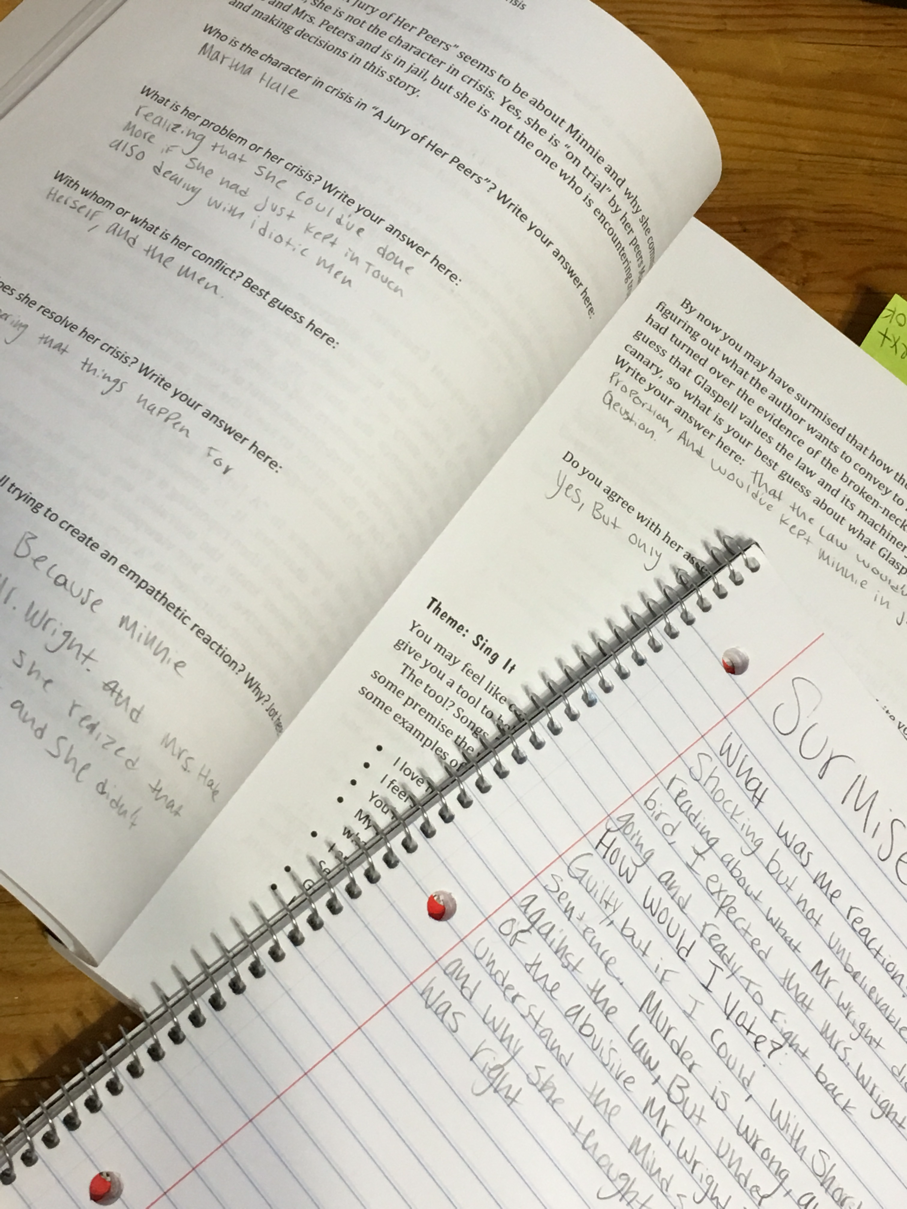 isis
Jury of Her Peers" seems to be about Minnie and why she com
, she is not the character in crisis. Yes, she is "on trial" by her peers M
and Mrs. Peters and is in jail, but she is not the one who is encountering
and making decisions in this story.
Who is the character in crisis in "A Jury of Her Peers"? Write your answer here:
Martha Hale
What is her problem or her crisis? Write your answer here:
realizing that she could've done
more if she had just kept in touch
also dealing with idiotic men
With whom or what is her conflict? Best guess here:
Herself, and the men.
oes she resolve her crisis? Write your answer here:
aring that things happen for
ll trying to create an empathetic reaction? Why?
Because Minnie
ll. Wright. And Mrs. Hale
she realized that
and She didn't
By now you may have surmised that how the
figuring out what the author wants to convey to
had turned over the evidence of the broken-neck
guess that Glaspell values the law and its machiner
canary, so what is your best guess about what Glasp
Write your answer here: That the law would
Proportion, And would've kept Minnie in j
Qeustion.
Do you agree with her ass
Yes, But only
Theme: Sing It
You may feel like
give you a tool to
The tool? Songs
some premise the
some examples of
• I love
• I feel
• You
• My
Surmise
What was me reaction?
Shocking but not unbelievable
reading about what Mr Wright di
bird, I expected that Mrs. Wright
going and ready to fight back
How would I vote?
Guilty, but if I could, with Short
sentence. Murder is wrong, a
against the law, But under
of the abusive Mr. Wright
understand the minds
and why she thought
was right